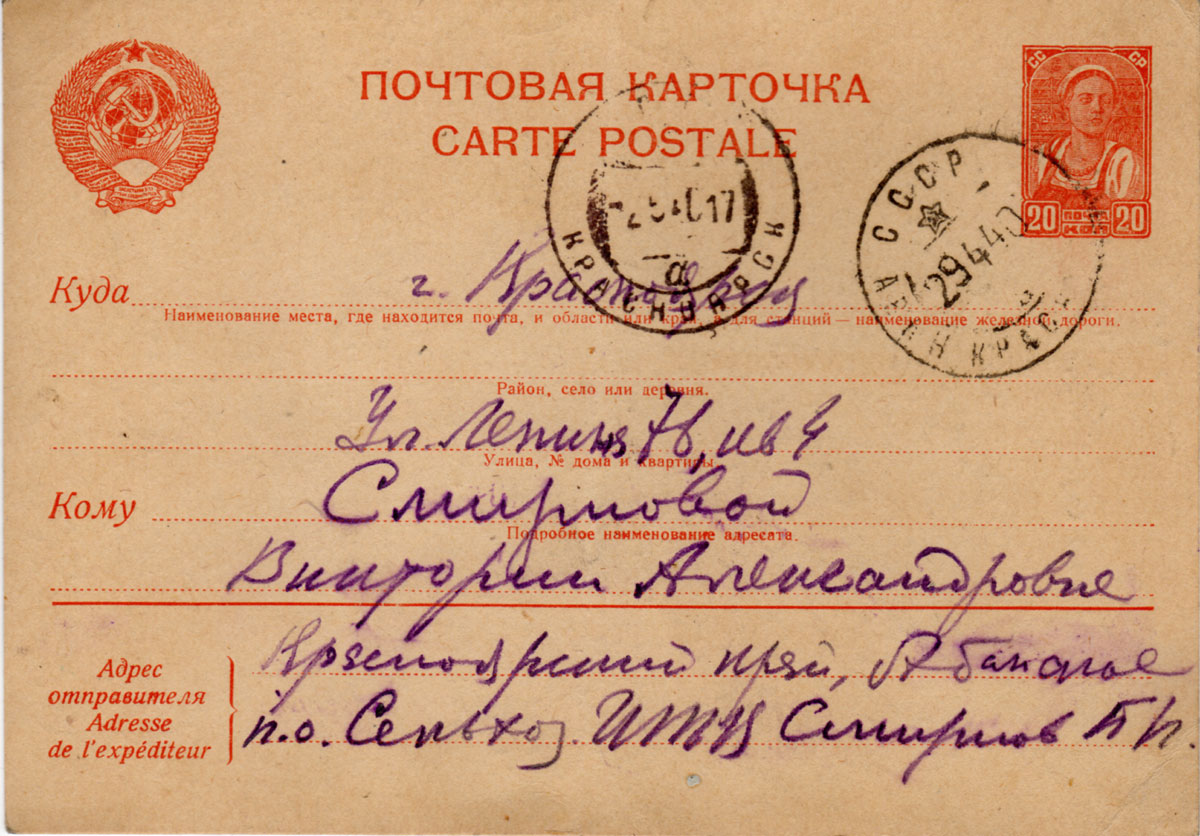 ПОЧТОВАЯ КАРТОЧКА
CARTE POSTALE
СС СР
20 ПОЧТА КОП 20
СССР
29 4 40
КРАС
2 5 40 17
а
КРАСНОЯРСК
Куда г. Красноярск
Наименование места, где находится почта, и области или края, а для станций — наименование железной дороги.
Район, село или деревня.
Ул. Ленина 78, кв 4
Улица, № дома и квартиры.
Кому Смирновой
Подробное наименование адресата.
Виктории Александровне
Адрес отправителя
Adresse de l'expéditeur
Красноярский край, Абанское
п.о. Сельхоз. Смирнов